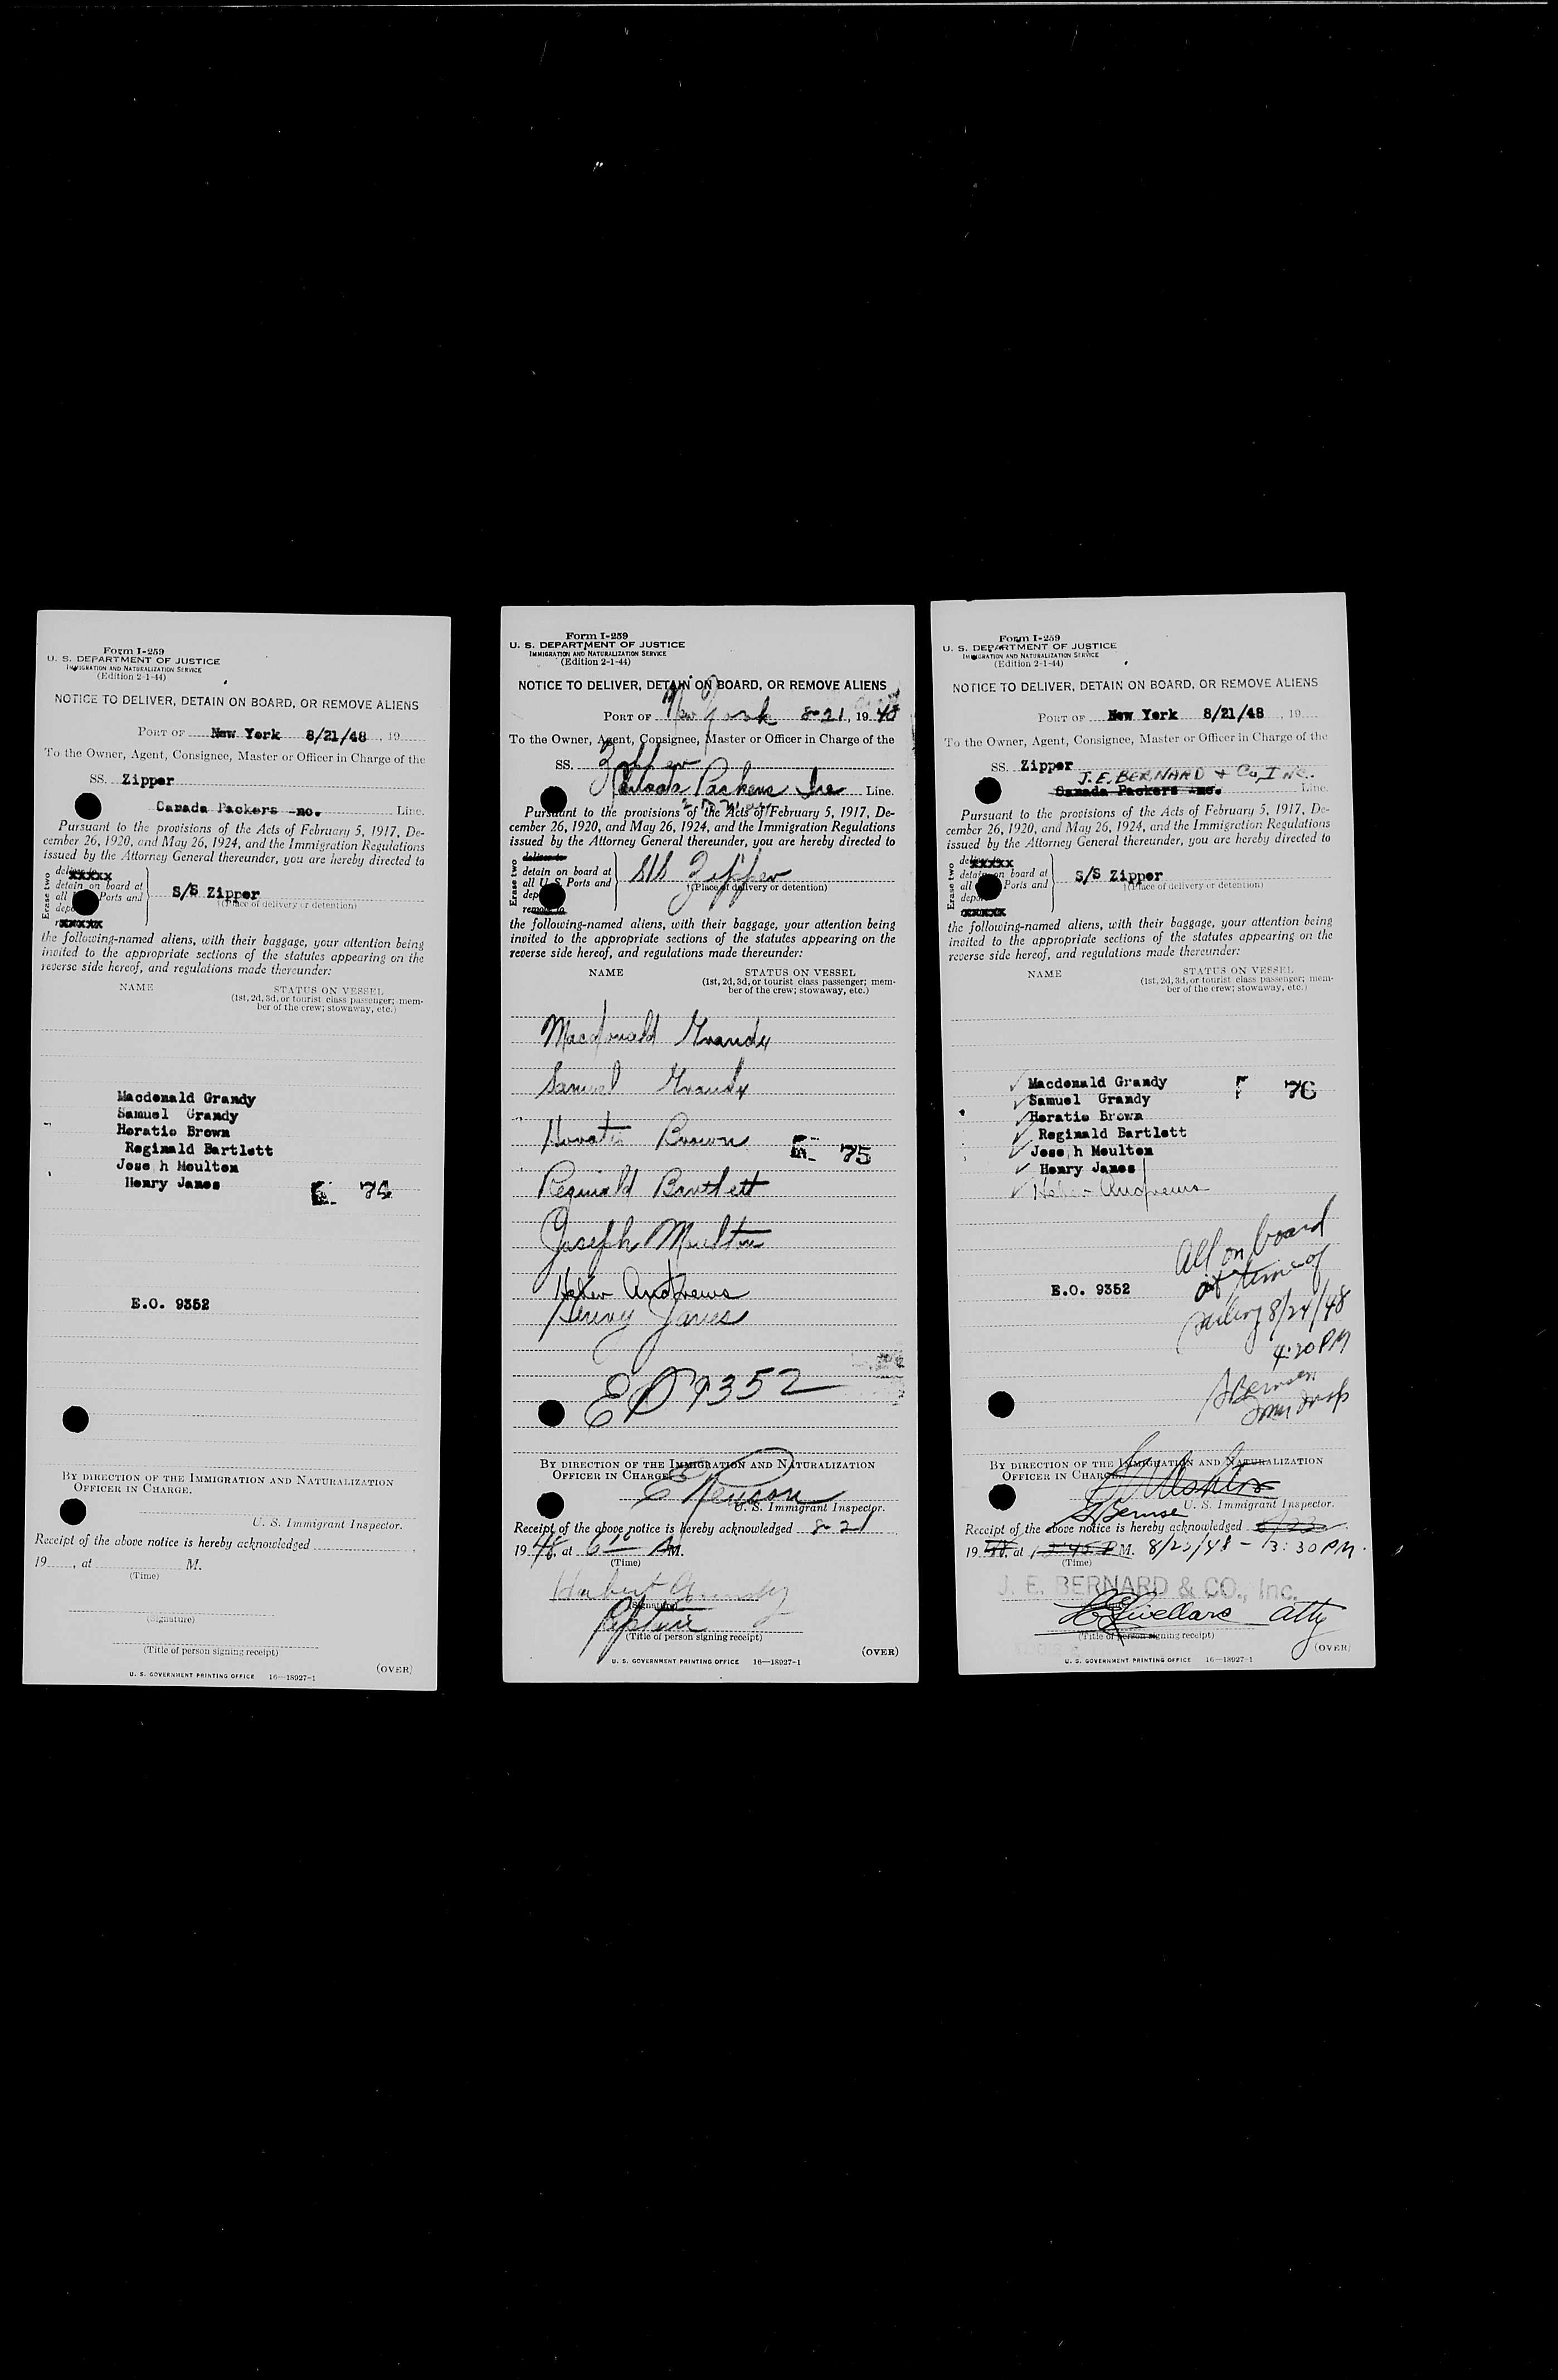 Form I-259
U. S. DEPARTMENT OF JUSTICE
IMMIGRATION AND NATURALIZATION SERVICE
(Edition 2-1-44)
NOTICE TO DELIVER, DETAIN ON BOARD, OR REMOVE ALIENS
PORT OF New York 8/21/48, 19
To the Owner, Agent, Consignee, Master or Officer in Charge of the
SS. Zipper
Canada Packers -nc. Line.
Pursuant to the provisions of the Acts of February 5, 1917, De-
cember 26, 1920, and May 26, 1924, and the Immigration Regulations
issued by the Attorney General thereunder, you are hereby directed to
Erase two
detain on board at
all Ports and
S/S Zipper
(Place of delivery or detention)
the following-named aliens, with their baggage, your attention being
invited to the appropriate sections of the statutes appearing on the
reverse side hereof, and regulations made thereunder:
NAME STATUS ON VESSEL
(1st, 2d, 3d, or tourist class passenger; mem-
ber of the crew; stowaway, etc.)
Macdonald Grandy
Samuel Grandy
Horatio Brown
Reginald Bartlett
Jose h Moulton
Henry Janes
74
E.O. 9352
BY DIRECTION OF THE IMMIGRATION AND NATURALIZATION
OFFICER IN CHARGE.
U. S. Immigrant Inspector.
Receipt of the above notice is hereby acknowledged
19, at M.
(Time)
(Signature)
(Title of person signing receipt)
U. S. GOVERNMENT PRINTING OFFICE 16—18927-1
(OVER)
Form I-259
U. S. DEPARTMENT OF JUSTICE
IMMIGRATION AND NATURALIZATION SERVICE
(Edition 2-1-44)
NOTICE TO DELIVER, DETAIN ON BOARD, OR REMOVE ALIENS
PORT OF New York 8-21, 1948
To the Owner, Agent, Consignee, Master or Officer in Charge of the
SS. Zipper
Canada Packers Inc Line.
Pursuant to the provisions of the Acts of February 5, 1917, De-
cember 26, 1920, and May 26, 1924, and the Immigration Regulations
issued by the Attorney General thereunder, you are hereby directed to
Erase two
deliver to
detain on board at
all U. S. Ports and
remove to
S/S Zipper
(Place of delivery or detention)
the following-named aliens, with their baggage, your attention being
invited to the appropriate sections of the statutes appearing on the
reverse side hereof, and regulations made thereunder:
NAME STATUS ON VESSEL
(1st, 2d, 3d, or tourist class passenger; mem-
ber of the crew; stowaway, etc.)
Macdonald Grandy
Samuel Grandy
Horatio Brown
75
Reginald Bartlett
Joseph Moulton
Heber Andrews
Henry Janes
EO 9352
BY DIRECTION OF THE IMMIGRATION AND NATURALIZATION
OFFICER IN CHARGE.
U. S. Immigrant Inspector.
Receipt of the above notice is hereby acknowledged 8-21
1948, at 6 10 AM.
(Time)
Herbert Grandy
(Signature)
(Title of person signing receipt)
U. S. GOVERNMENT PRINTING OFFICE 16—18927-1
(OVER)
Form I-259
U. S. DEPARTMENT OF JUSTICE
IMMIGRATION AND NATURALIZATION SERVICE
(Edition 2-1-44)
NOTICE TO DELIVER, DETAIN ON BOARD, OR REMOVE ALIENS
PORT OF New York 8/21/48, 19
To the Owner, Agent, Consignee, Master or Officer in Charge of the
SS. Zipper
J. E. BERNARD & Co, INC.
Canada Packers -nc. Line.
Pursuant to the provisions of the Acts of February 5, 1917, De-
cember 26, 1920, and May 26, 1924, and the Immigration Regulations
issued by the Attorney General thereunder, you are hereby directed to
Erase two
detain on board at
all Ports and
S/S Zipper
(Place of delivery or detention)
the following-named aliens, with their baggage, your attention being
invited to the appropriate sections of the statutes appearing on the
reverse side hereof, and regulations made thereunder:
NAME STATUS ON VESSEL
(1st, 2d, 3d, or tourist class passenger; mem-
ber of the crew; stowaway, etc.)
Macdonald Grandy
76
Samuel Grandy
Horatio Brown
Reginald Bartlett
Jose h Moulton
Henry Janes
Heber Andrews
All on board
at time of
sailing 8/24/48
E.O. 9352
4:20 PM
BY DIRECTION OF THE IMMIGRATION AND NATURALIZATION
OFFICER IN CHARGE.
U. S. Immigrant Inspector.
Receipt of the above notice is hereby acknowledged 8/23
1948, at M. 8/23/48 - 3:30 PM.
(Time)
J. E. BERNARD & CO., Inc.
Atty
(Title of person signing receipt)
U. S. GOVERNMENT PRINTING OFFICE 16—18927-1
(OVER)